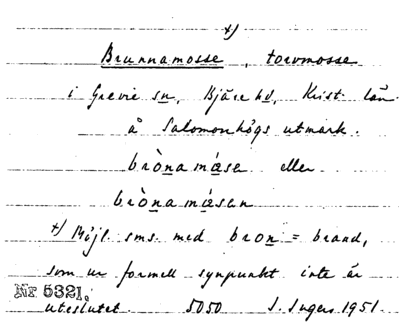 x)
Brunnamosse, torvmosse
i Grevie sn, Bjäre hd, Krist. län
å Salomonhögs utmark.
bròna mása eller
bròna másan
x) Möjl. sms. med bron = brand,
som ur formell synpunkt inte är
uteslutet 5050 I. Ingers 1951.
Nr 5321.